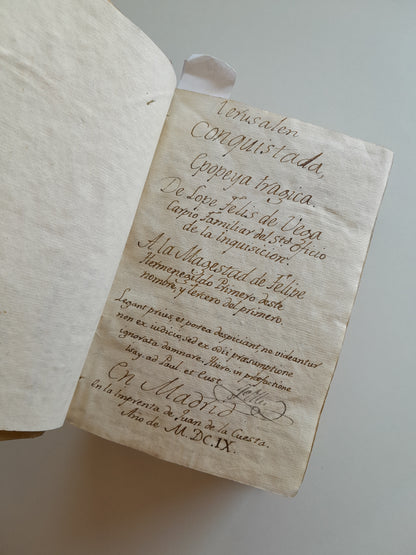 Ierusalen
Conquistada,
Epopeya tragica.
De Lope Felis de Vega
Carpio familiar del sto oficio
de la Inquisicion.
A la Magestad de Felipe
Hermenegildo Primero deste
nombre, y tercero del primero.
Legant prius et postea despiciant, ne videantur
non ex iudicio, sed ex odii præsumptione
ignorata damnare. Hiero. in præfactione
Isay. ad Paul. et Eust.
En Madrid
En la imprenta de Juan de la Cuesta.
Año de M.DC.IX.